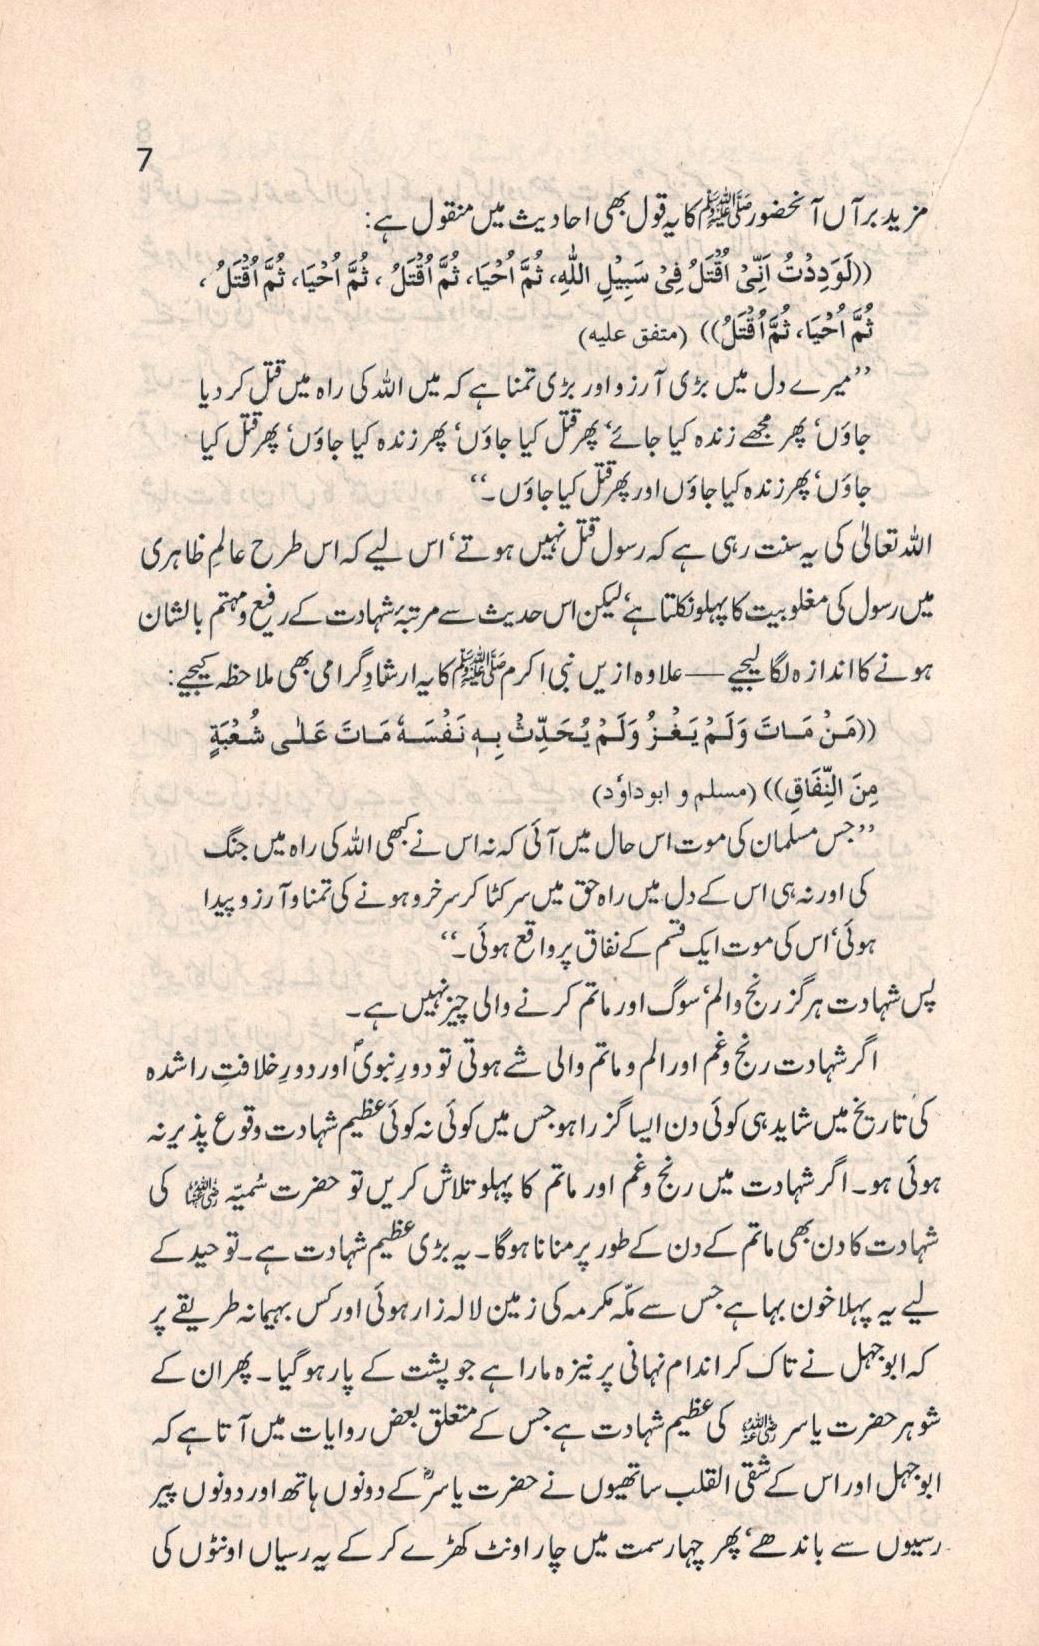 7
مزید برآں آنحضور ﷺ کا یہ قول بھی احادیث میں منقول ہے:
((لَوَدِدْتُ اَنِّیْ اُقْتَلُ فِیْ سَبِیْلِ اللّٰہِ، ثُمَّ اُحْیَا، ثُمَّ اُقْتَلُ ، ثُمَّ اُحْیَا، ثُمَّ اُقْتَلُ ،
ثُمَّ اُحْیَا، ثُمَّ اُقْتَلُ)) (متفق علیہ)
’’میرے دل میں بڑی آرزو اور بڑی تمنا ہے کہ میں اللہ کی راہ میں قتل کر دیا
جاؤں‘ پھر مجھے زندہ کیا جائے‘ پھر قتل کیا جاؤں‘ پھر زندہ کیا جاؤں‘ پھر قتل کیا
جاؤں‘ پھر زندہ کیا جاؤں اور پھر قتل کیا جاؤں۔‘‘
اللہ تعالیٰ کی یہ سنت رہی ہے کہ رسول قتل نہیں ہوتے‘ اس لیے کہ اس طرح عالمِ ظاہری
میں رسول کی مغلوبیت کا پہلو نکلتا ہے‘ لیکن اس حدیث سے مرتبۂ شہادت کے رفیع و مہتم بالشان
ہونے کا اندازہ لگا لیجیے — علاوہ ازیں نبی اکرم ﷺ کا یہ ارشادِ گرامی بھی ملاحظہ کیجیے:
((مَنْ مَاتَ وَلَمْ یَغْزُ وَلَمْ یُحَدِّثْ بِہٖ نَفْسَہٗ مَاتَ عَلٰی شُعْبَۃٍ
مِنَ النِّفَاقِ)) (مسلم و ابوداوٗد)
’’جس مسلمان کی موت اس حال میں آئی کہ نہ اس نے کبھی اللہ کی راہ میں جنگ
کی اور نہ ہی اس کے دل میں راہ حق میں سر کٹا کر سرخرو ہونے کی تمنا و آرزو پیدا
ہوئی‘ اس کی موت ایک قسم کے نفاق پر واقع ہوئی۔‘‘
پس شہادت ہرگز رنج والم‘ سوگ اور ماتم کرنے والی چیز نہیں ہے۔
اگر شہادت رنج و غم اور الم و ماتم والی شے ہوتی تو دورِ نبویؐ اور دورِ خلافتِ راشدہ
کی تاریخ میں شاید ہی کوئی دن ایسا گزرا ہو جس میں کوئی نہ کوئی عظیم شہادت وقوع پذیر نہ
ہوئی ہو۔ اگر شہادت میں رنج و غم اور ماتم کا پہلو تلاش کریں تو حضرت سُمیّہ رضی اللہ عنہا کی
شہادت کا دن بھی ماتم کے دن کے طور پر منانا ہوگا۔ یہ بڑی عظیم شہادت ہے۔ توحید کے
لیے یہ پہلا خون بہا ہے جس سے مکّہ مکرمہ کی زمین لالہ زار ہوئی اور کس بہیمانہ طریقے پر
کہ ابوجہل نے تاک کر اندام نہانی پر نیزہ مارا ہے جو پشت کے پار ہو گیا۔ پھر ان کے
شوہر حضرت یاسر رضی اللہ عنہ کی عظیم شہادت ہے جس کے متعلق بعض روایات میں آتا ہے کہ
ابوجہل اور اس کے شقی القلب ساتھیوں نے حضرت یاسرؓ کے دونوں ہاتھ اور دونوں پیر
رسیوں سے باندھے‘ پھر چہار سمت میں چار اونٹ کھڑے کر کے یہ رسیاں اونٹوں کی